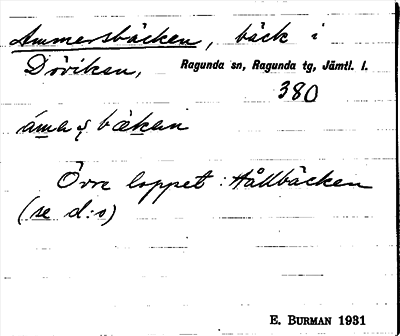 Ammersbäcken, bäck i
Döviken, Ragunda sn, Ragunda tg, Jämtl. l.
380
Övre loppet: Hållbäcken
(se d:o)
E. BURMAN 1931